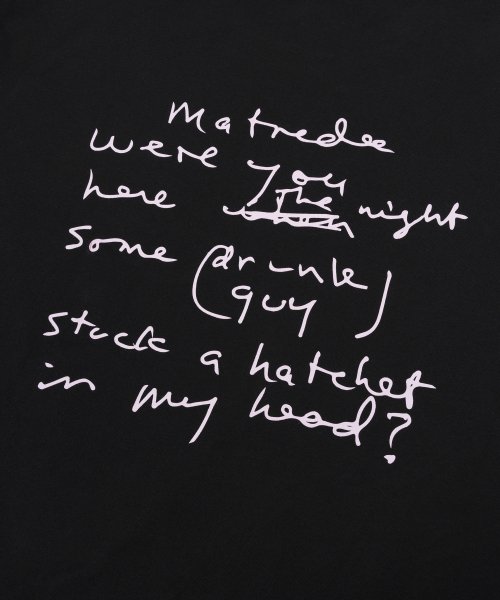 Matredee
were you
here the night
some (drunk
guy)
stuck a hatchet
in my head?